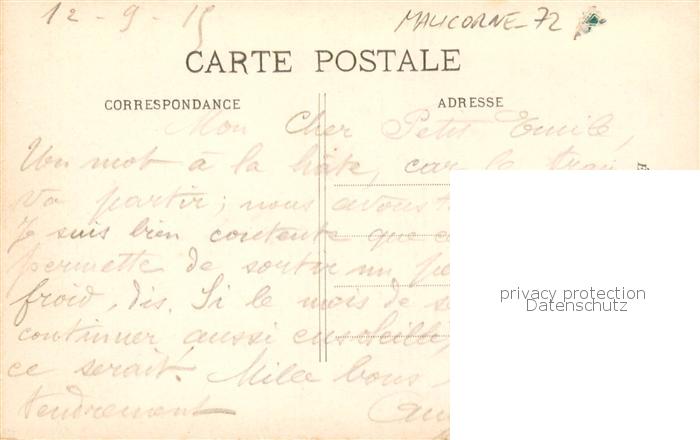 12-9-15
MALICORNE-72
CARTE POSTALE
CORRESPONDANCE
ADRESSE
Mon Cher Petit Emile,
Un mot à la hâte, car le train
va partir; nous avons
Je suis bien contente que
permette de sortir un
froid, dis. Si le mois de
continuer aussi ensoleillé,
ce serait. Mille bons
tendrement
privacy protection
Datenschutz